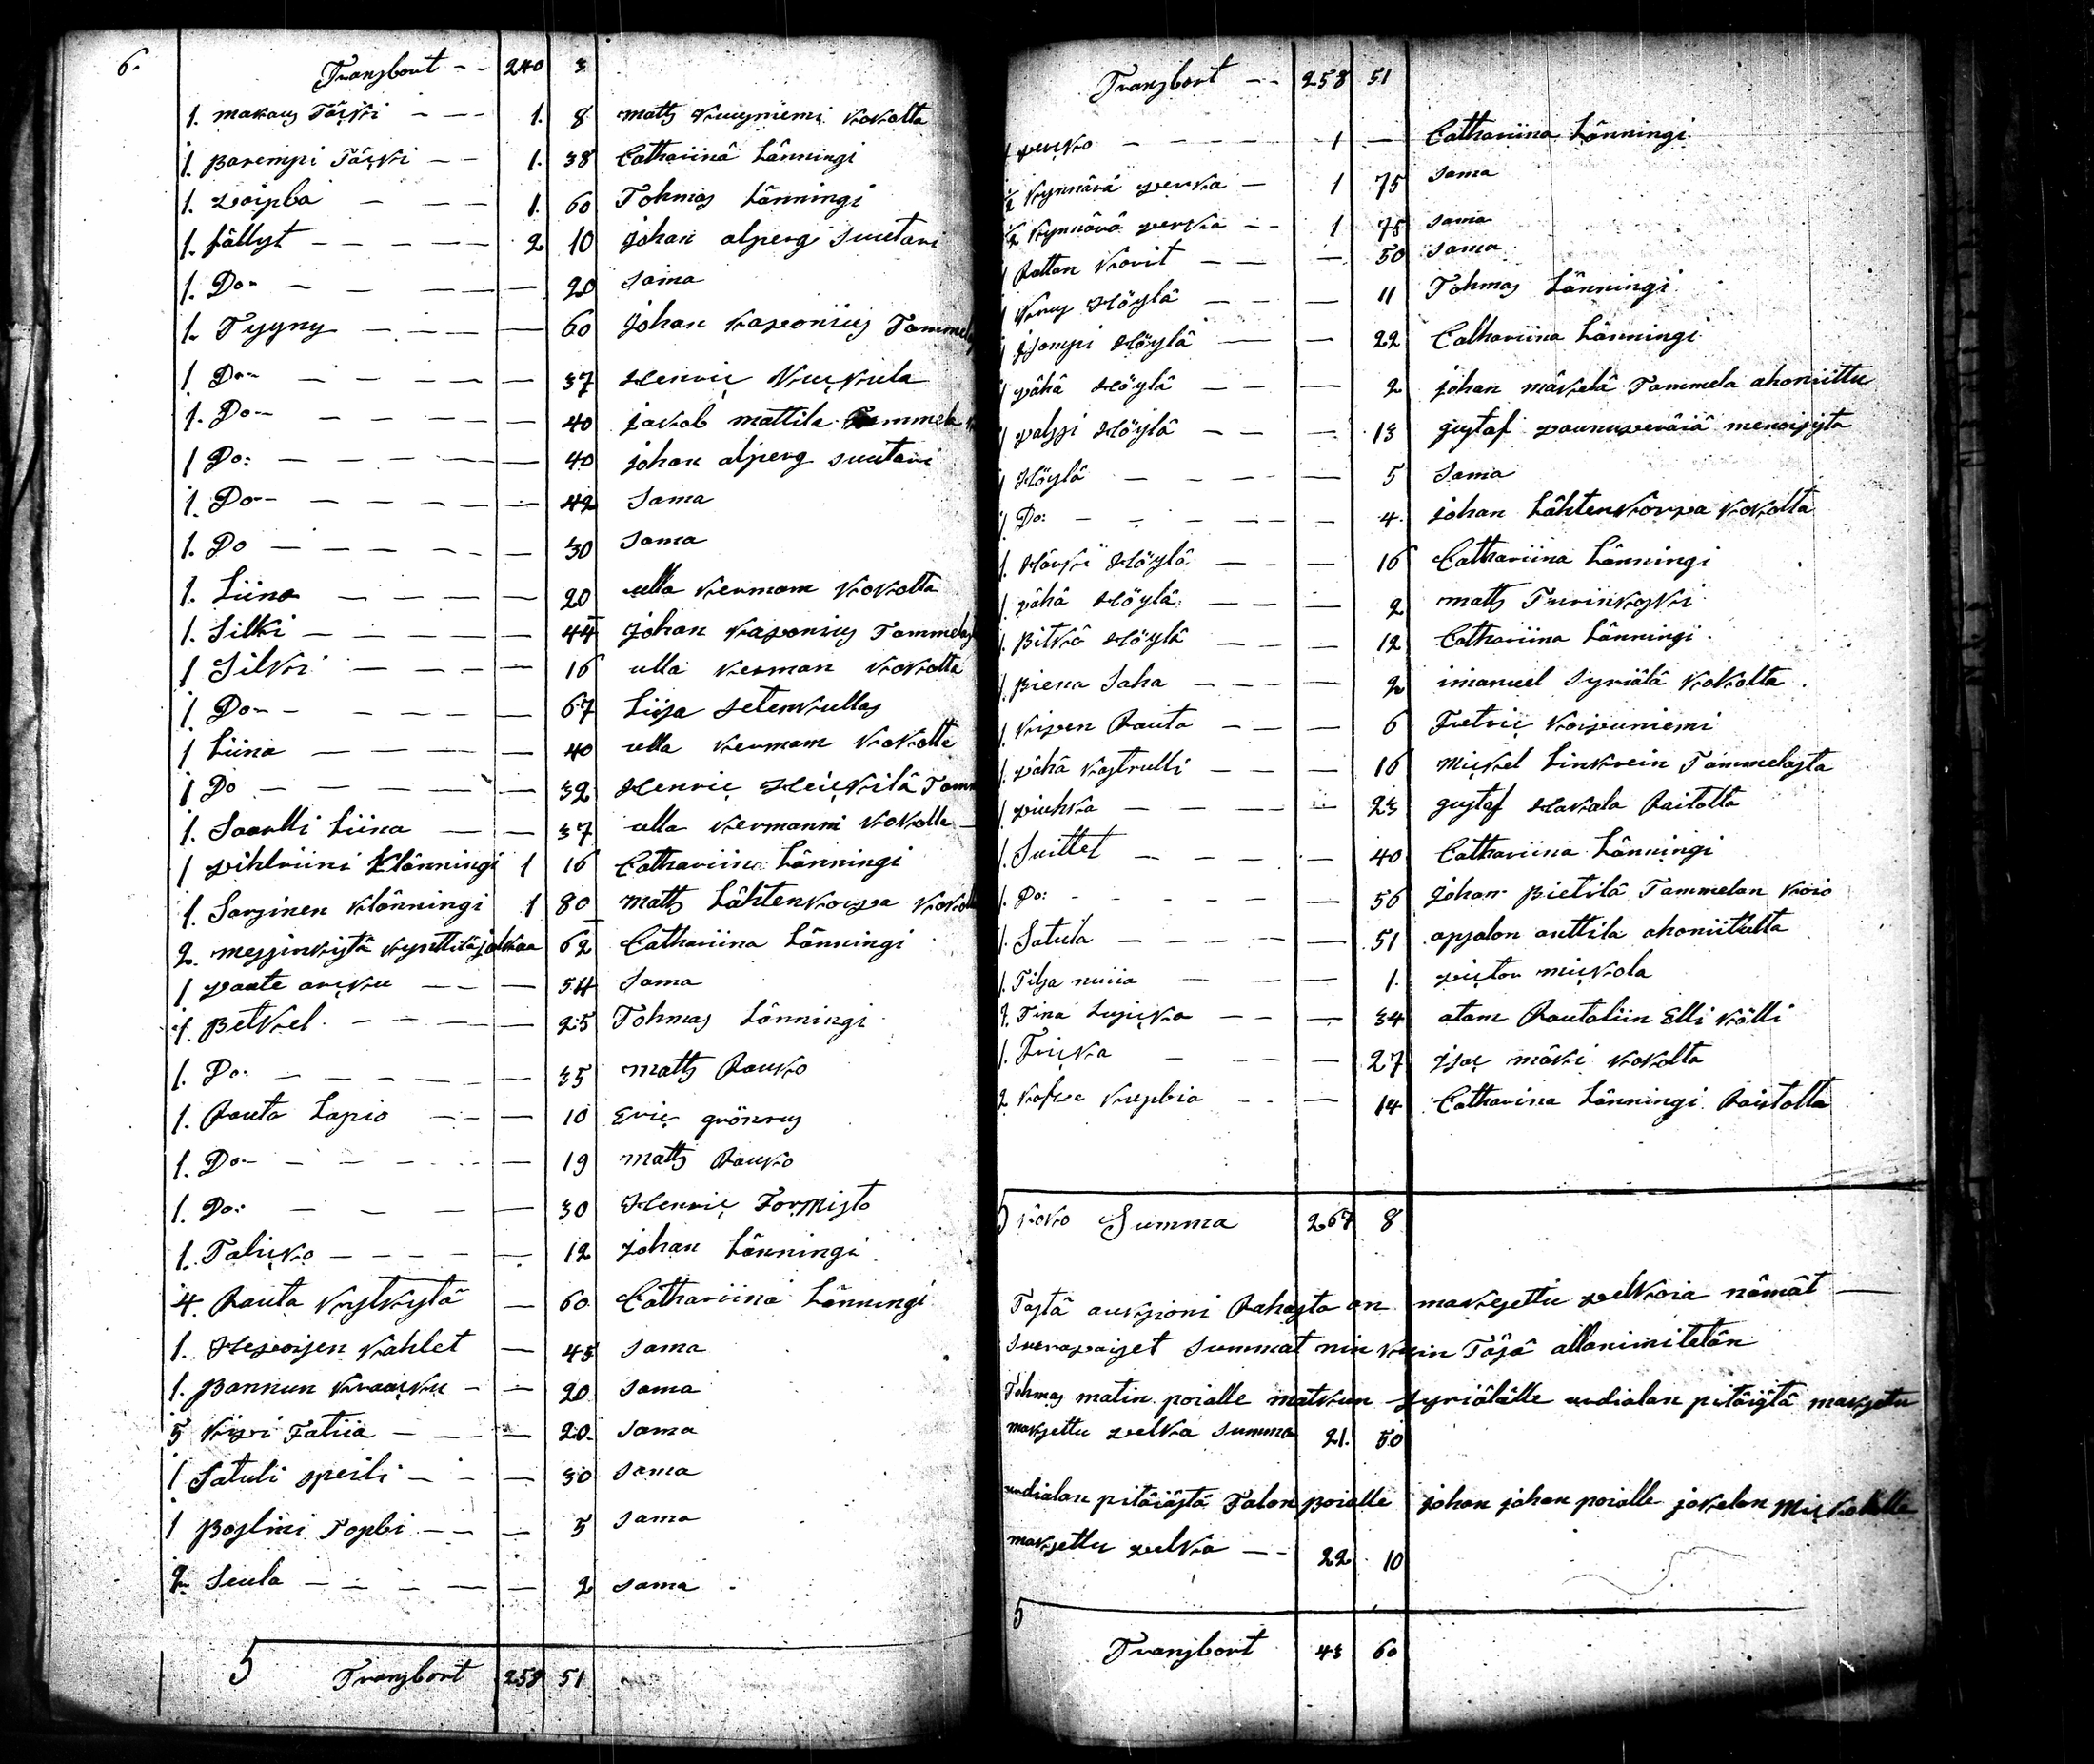 6.
Transbort -- 240 3
1. makaus Täcki - -- 1. 8 matts Kuusniemi kokolta
1 parempi Täcki -- 1. 38 Cathariina Länningi
1. vaipba - -- 1. 60 Tohmas Länningi
1. fällyt ----- 2 10 Johan alperg Suutari
1. Do- ---- 20 Sama
1. Tyyny ---- 60 Johan kaponius Tammela
1 Do- ----- 37 Henric Kuckula
1. Do- ----- 40 jakob mattila Tammela
1 Do: ----- 40 johan alperg suutari
1. Do- ----- 42 Sama
1. Do ------ 30 Sama
1. Liina ---- 20 ulla kermam kokolta
1. Silki ----- 44 Johan kaponius Tammelas
1 Silki ---- 16 ulla kerman kokolta
1. Do- ---- 67 Liisa Setenkullas
1 Liina ---- 40 ulla kermam kokolta
1 Do ----- 32 Henric Heickilä Tamm
1. Saarlli Liina -- 37 ulla kermanni kokolla -
1 vihlriini Klänningi 1 16 Cathariina Länningi
1. Sarsinen klänningi 1 80 matts Lähtenkorpa kokol
2. messinkistä kynttiläjalkaa 62 Cathariina Länningi
1 vaate arcku --- 54 Sama
1. Betkel ---- 25 Tohmas Länningi
1. Do: ----- 35 matts Rauko
1. Rauta Lapio --- 10 Eric grönrus
1. Do- ----- 19 matts Rauko
1. Do: ---- 30 Henric Tormisto
1. Talicko ---- 12 Johan Länningi
4. Rauta kystkystä - 60 Cathariina Länningi
1. Hevoisen kahlet - 45 Sama
1. pannun kraacku -- 20 Sama
5 kivi Fatiia --- 20 Sama
1 Satuli speili --- 30 Sama
1 poslini Topbi --- 5 Sama
2 Seula ----- 2 Sama
5 Transbort 258 51
Transbort -- 258 51
1 vercko ---- 1 - Cathariina Länningi
1/2 kynnärä verka - 1 75 Sama
1/2 kynnärä verka -- 1 75 Sama
1 Rattan korit --- 50 Sama
1 krus Höylä --- 11 Tohmas Länningi
1 Isompi Höylä -- 22 Cathariina Länningi
1 vähä Höylä --- 2 johan mäkelä Tammela ahoniittu
1 valssi Höylä --- 13 gustaf vaunuperäiä menoisista
1 Höylä ----- 5 Sama
1 Do: ------ 4. johan Lähtenkorpa kokolta
1. Harki Höylä --- 16 Cathariina Länningi
1. vähä Höylä --- 2 matts Turinkoski
1. Bitkä Höylä --- 12 Cathariina Länningi
1. Biena Saha ---- 2 imanuel Syriälä kokolta.
1. kiven Rauta --- 6 Fretric koivuniemi
1. vähä kastrulli --- 16 Mickel Linkrein Tammelasta
1. viuhka ----- 23 gustaf Hakala Raitalta
1. Suittet ---- 40 Cathariina Länningi
1. Do: ------ 56 Johan Bietilä Tammelan koio
1. Satula ----- 51 apsalon anttila ahoniitulta
1. Tilsa nuiia -- 1. victor mickola
2. Tina Lusicka --- 34 atam Rautaliin Elli källi
1. Fricka --- 27 Isac mäki kokolta
2 kafve kupbia --- 14 Catharina Länningi Raistolta
5 koko Summa 267 8
Tästä aukzioni Rahasta on maksettu velkoia nämät —
Seuravaiset Summat nin kuin Täsä allanimitetän
Tohmas matin poialle matkun Syriälälle urdialan pitäistä maksetu
maksettu velka Summa 21. 50
urdialan pitäiästä Talon poialle johan johan poialle jokelan Mickolalle
maksettu velka -- 22. 10
5
Transbort 43 60